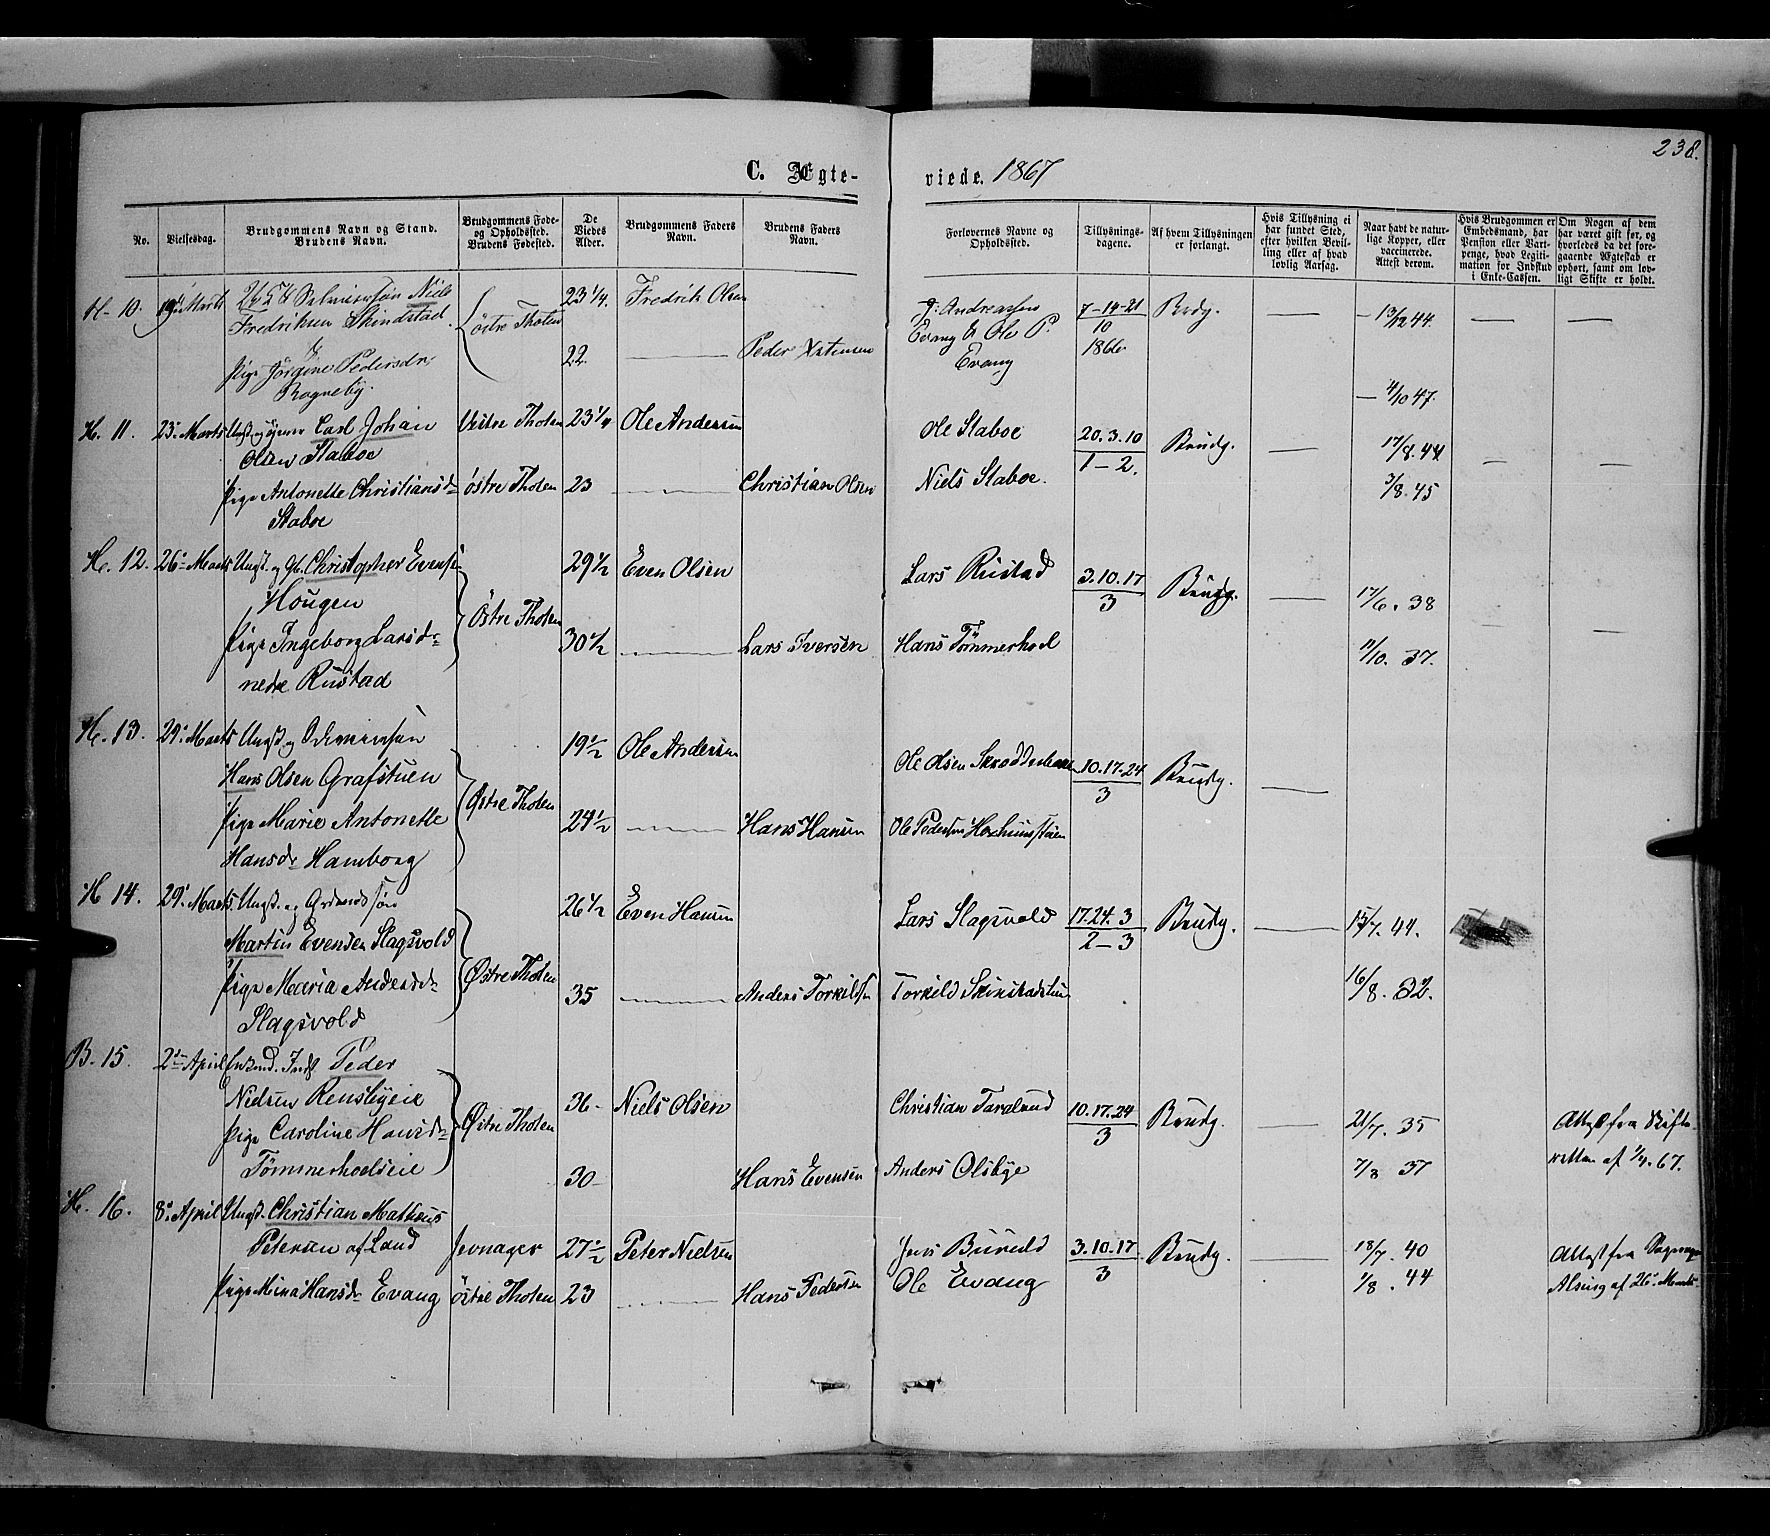 238.
C. Ægte-
viede. 1867
No.
Vielsesdag.
Brudgommens Navn og Stand.
Brudens Navn.
Brudgommens Føde-
og Opholdssted.
Brudens Fødested.
De
Viedes
Alder.
Brudgommens Faders
Navn.
Brudens Faders
Navn.
Forlovernes Navne og
Opholdssted.
Tillysnings-
dagene.
Af hvem Tillysningen
er forlangt.
Hvis Tillysning ei
har fundet Sted,
efter hvilken Bevil-
ling eller af hvad
lovlig Aarsag.
Naar havt de natur-
lige Kopper, eller
vaccinerede.
Attest derom.
Hvis Brudgommen er
Embedsmand, har
Pension eller Vart-
penge, hvad Legiti-
mation for Indskud
i Enke-Cassen.
Om Nogen af dem
har været gift før, og
hvorledes da det fore-
gaaende Ægteskab er
ophørt, samt om lov-
ligt Skifte er holdt.
H. 10. Marts Selveiersøn Niels
Fredriksen Skindstad
&
Pige Jörgine Pedersdr
Rogneby.
östre Thoten
23 1/4. Fredrik Olsen
22. — Peder
J. Andreassen
Evang & Ole P.
Evang
7-14-21
10
1866
Brdg.
— 13/12 44. — —
— 4/10 47.
H. 11. 23' Marts Carl Johan
Olsen Staboe
Vestre Thoten 23 1/4 Ole Andersen
Pige Antonette Christiansd
Staboe
östre Thoten 23 — Christian Olsen
Ole Staboe
Niels Staboe.
20. 3. 10
1 – 2.
Brudg. — 17/8. 44 — —
3/8. 45
H. 12. 26' Marts Ungk. og Christopher Evens
Hougen
Pige Ingeborg Larsd
Rustad
Östre Thoten
29 1/2 Even Olsen
30 1/2 — Lars Iversen
Lars Rustad
Hans Tømmerhoel
3. 10. 17
3
Brudg. — 17/6. 38 — —
11/10. 37.
H. 13. 29' Marts Ungk. og
Hans Olsen Grafstuen
Pige Marie Antonette
Hansdr Hamborg
Østre Thoten
19 1/2 Ole Andersen
24 1/2 — Hans Hansen
Ole Olsen
Ole Pedersen
10. 17. 24
3
Brudg. —
H 14. 29' Marts. Ungk. og
Martin Evensen Slagsvold
Pige Maria Andersd
Slagsvold
Østre Thoten
26 1/2 Even Hansen
35 — Anders Torkildsen
Lars Slagsvold
Torkeld
17. 24. 3
2 – 3
Brudg. — 15/7. 44.
16/8. 32.
B. 15. 2 April Enkmd. Inds. Peder
Nielsen Rensbyeie
Pige Caroline Hansd
Tømmerhoelseie
Østre Thoten
36 – Niels Olsen
30 – Hans Evensen
Christian Taralrud
Anders Olsbye
10. 17. 24
3
Brudg. — 21/7. 35
7/8 37
Attest fra Skifte-
retten af 67.
H. 16. 8' April Ungk. Christian Matheus
Petersen af Land
Jevnager 27 1/2 Peter Nielsen
Pige Mina Hansdr Evang östre Thoten 23 — Hans Pedersen
Jens
Ole Evang
3. 10. 17
3
Brudg. — 18/7. 40
1/8. 44
Attest fra
af 26' Marts